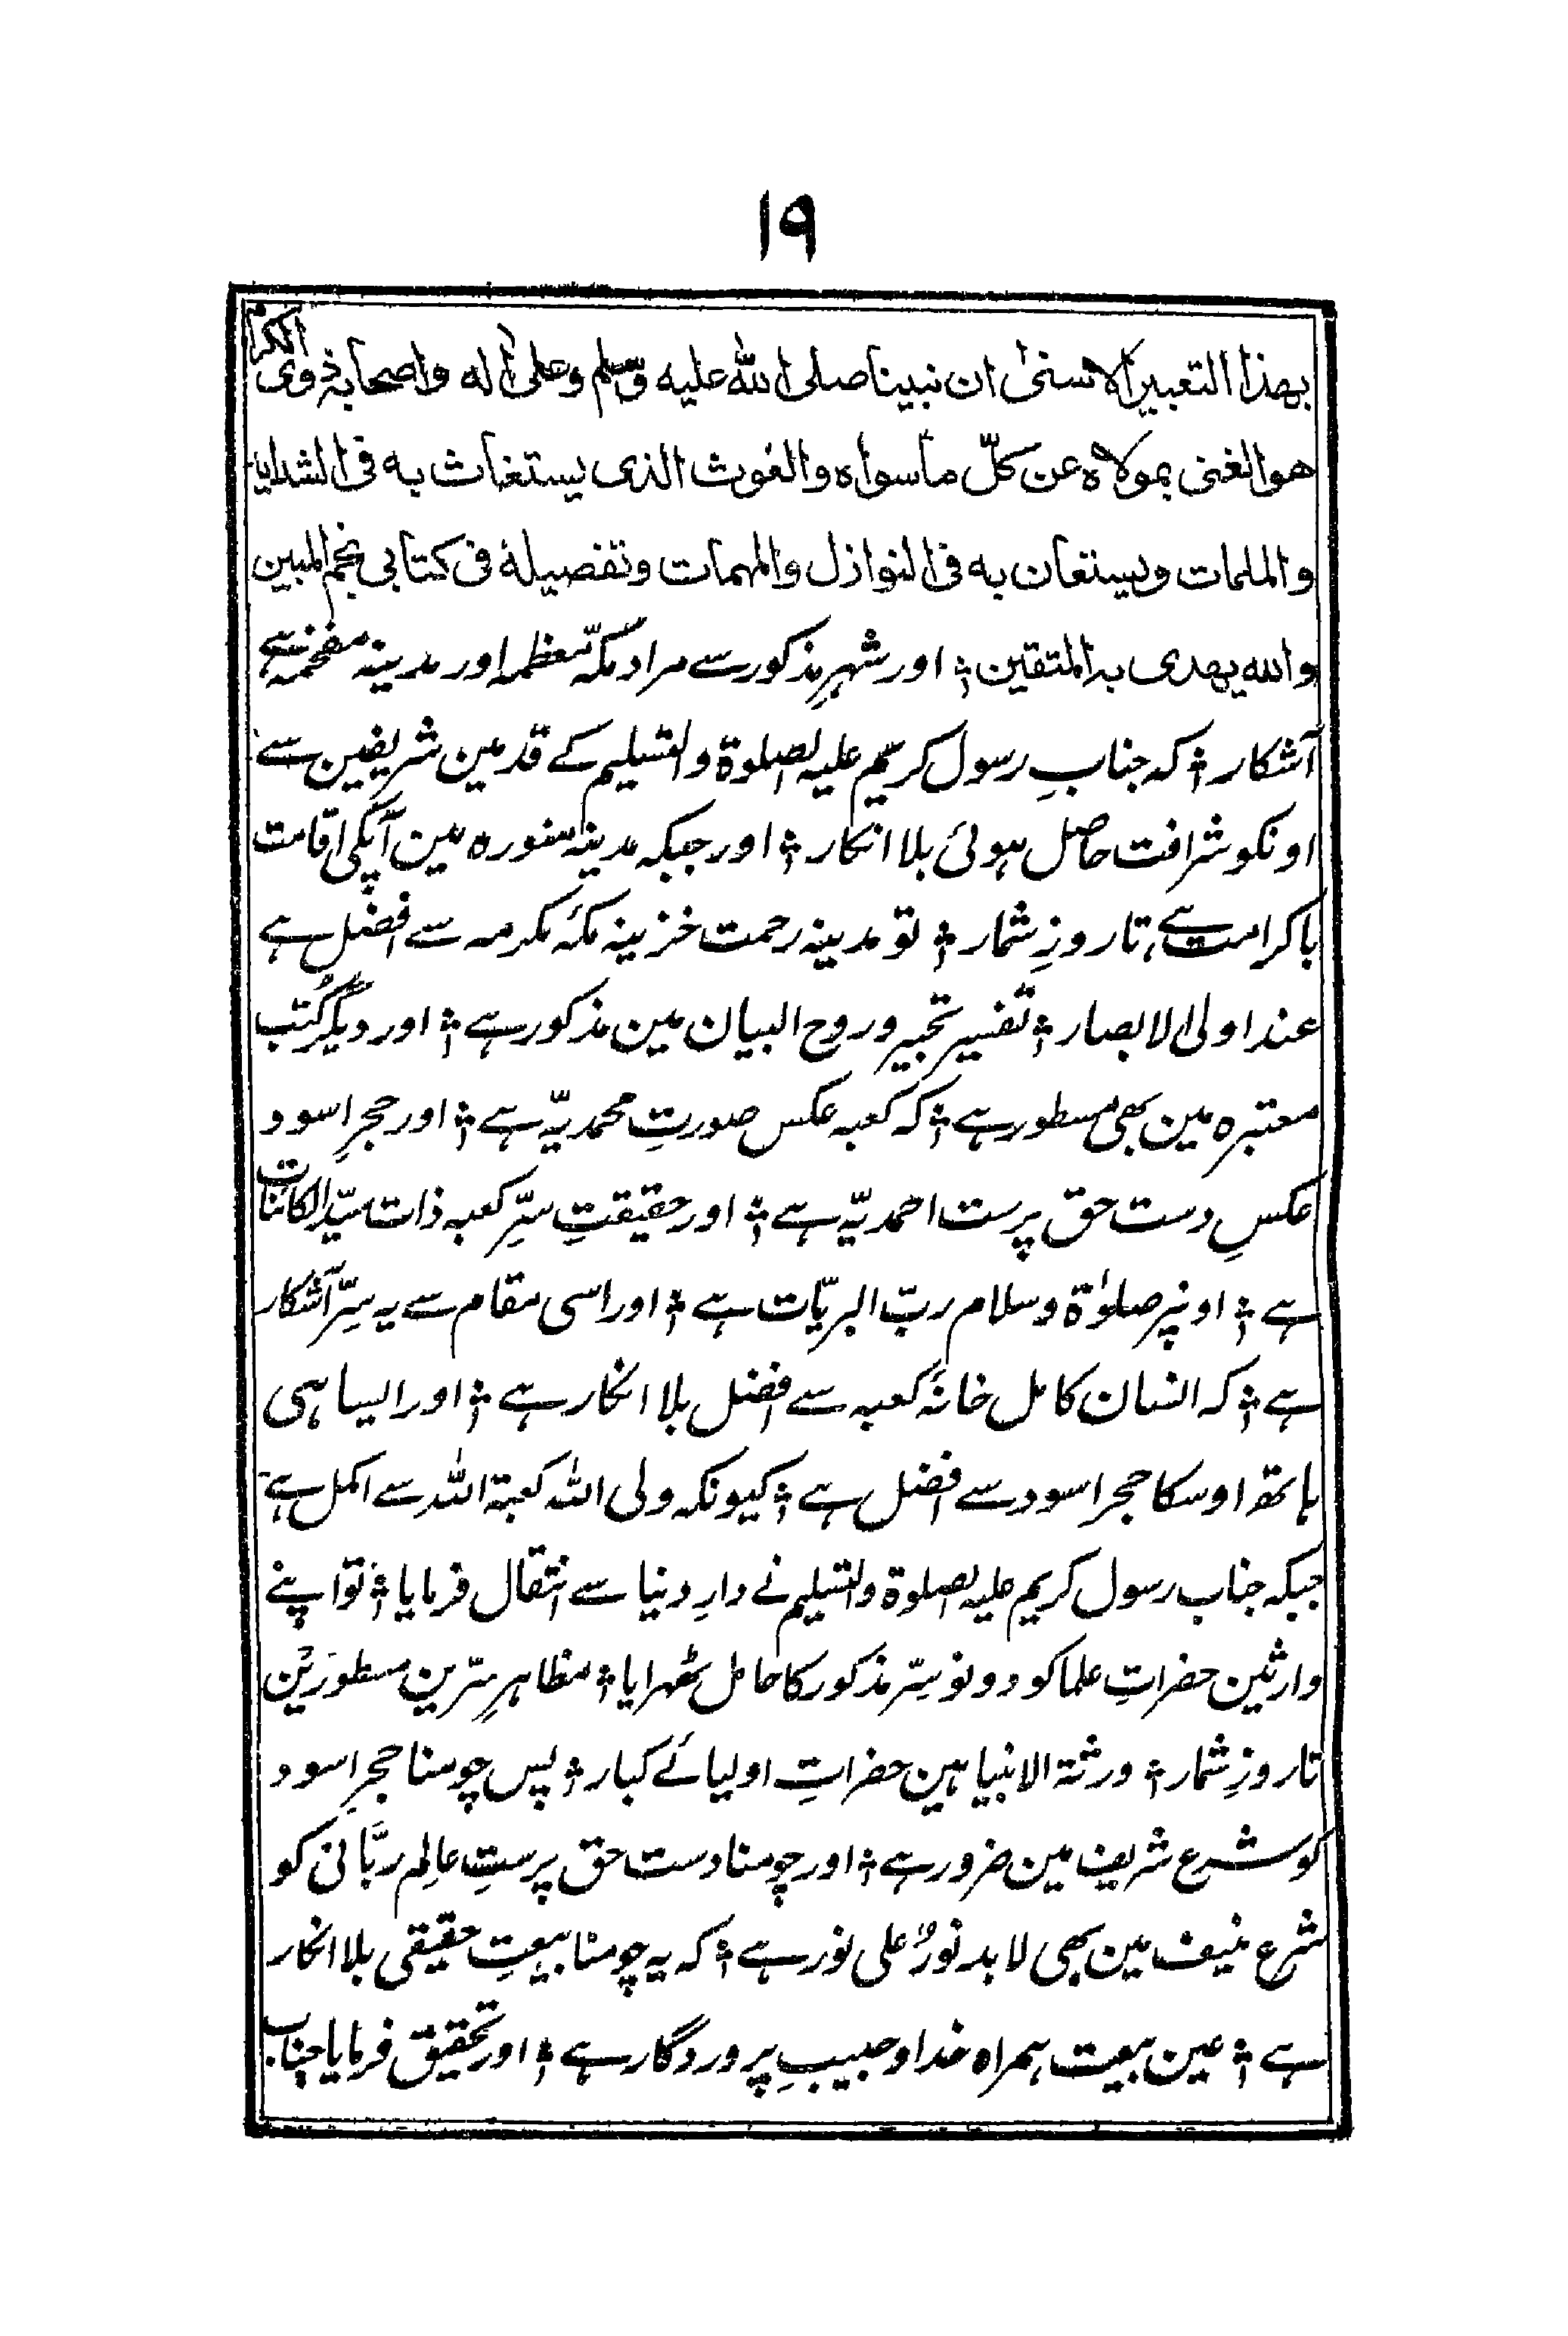 ۱۹
بهذا التعبير الاسنیٰ ان نبينا صلى الله عليه وسلم وعلى اٰله واصحابہ ذوی الکرم
هو الغنی بمولاه عن كلّ ما سواه والغوث الذی يستغاث به فی الشداید
والملمات ويستعان به فی النوازل والمهمات وتفصيلهٗ فی کتابی نجم المبین
والله یهدی به المتقین ؛ اور شہرِ مذکور سے مراد مکّہ معظمہ اور مدینہ مفخمہ ہے
آشکار ؛ کہ جنابِ رسول کریم علیہ الصلوۃ والتسلیم کے قدمین شریفین سے
اونکو شرافت حاصل ہوئی بلا انکار ؛ اور جبکہ مدینہ منورہ مین آپکی اقامت
باکرامت ہے تا روزِ شمار ؛ تو مدینہ رحمت خزینہ مکۂ مکرمہ سے افضل ہے
عند اولی الابصار ؛ تفسیر تجبیر و روح البیان مین مذکور ہے ؛ اور دیگر کُتب
معتبرہ مین بھی مسطور ہے ؛ کہ کعبہ عکس صورتِ محمدیّہ ہے ؛ اور حجرِ اسود
عکسِ دست حق پرست احمدیّہ ہے ؛ اور حقیقتِ سِرِّ کعبہ ذات سیّد الکائنات
ہے ؛ اونپر صلوٰۃ و سلام ربّ البریّات ہے ؛ اور اسی مقام سے یہ سِرّ آشکار
ہے ؛ کہ انسان کامل خانۂ کعبہ سے افضل بلا انکار ہے ؛ اور ایسا ہی
ہاتھ اوسکا حجر اسود سے افضل ہے ؛ کیونکہ ولی اللہ کعبۃ اللہ سے اکمل ہے
جبکہ جناب رسول کریم علیہ الصلوۃ والتسلیم نے دارِ دنیا سے انتقال فرمایا ؛ تو اپنے
وارثین حضراتِ علما کو دونو سِرّ مذکور کا حامل ٹھہرایا ؛ مظاہرِ سِرّین مسطورَین
تا روزِ شمار ؛ ورثۃ الانبیا ہین حضراتِ اولیائے کبار ؛ پس چومنا حجرِ اسود
کو شرع شریف مین ضرور ہے ؛ اور چومنا دست حق پرستِ عالِم ربّانی کو
شرع منیف مین بھی لابد نورٌ علی نور ہے ؛ کہ یہ چومنا بیعتِ حقیقی بلا انکار
ہے ؛ عین بیعت ہمراہ خدا و حبیبِ پروردگار ہے ؛ اور تحقیق فرمایا جناب